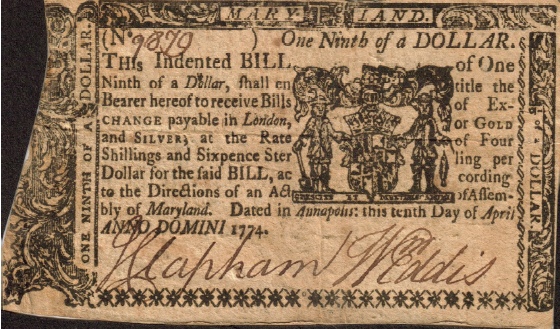 MARYLAND.
(No 9879 ) One Ninth of a DOLLAR.
THIS Indented BILL of One
Ninth of a Dollar, shall en title the
Bearer hereof to receive Bills of Ex-
CHANGE payable in London, or GOLD
and SILVER, at the Rate of Four
Shillings and Sixpence Ster ling per
Dollar for the said BILL, ac cording
to the Directions of an Act of Assem-
bly of Maryland. Dated in Annapolis: this tenth Day of April
ANNO DOMINI 1774.
J Clapham Wm Eddis
ONE NINTH OF A DOLLAR.
of a DOLLAR